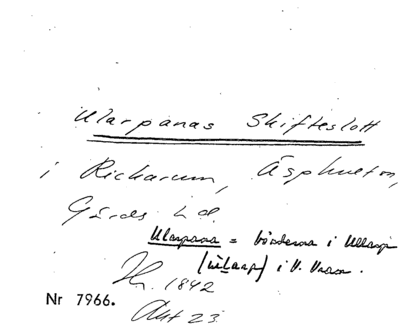 Ularpanas Skifteslott
i Rickarum, Äsphult sn,
Gärds hd.
Ularpana = bönderna i Ullarp
(Ularp) i V. Vram.
Hr. 1842
Nr 7966.
Akt 23.